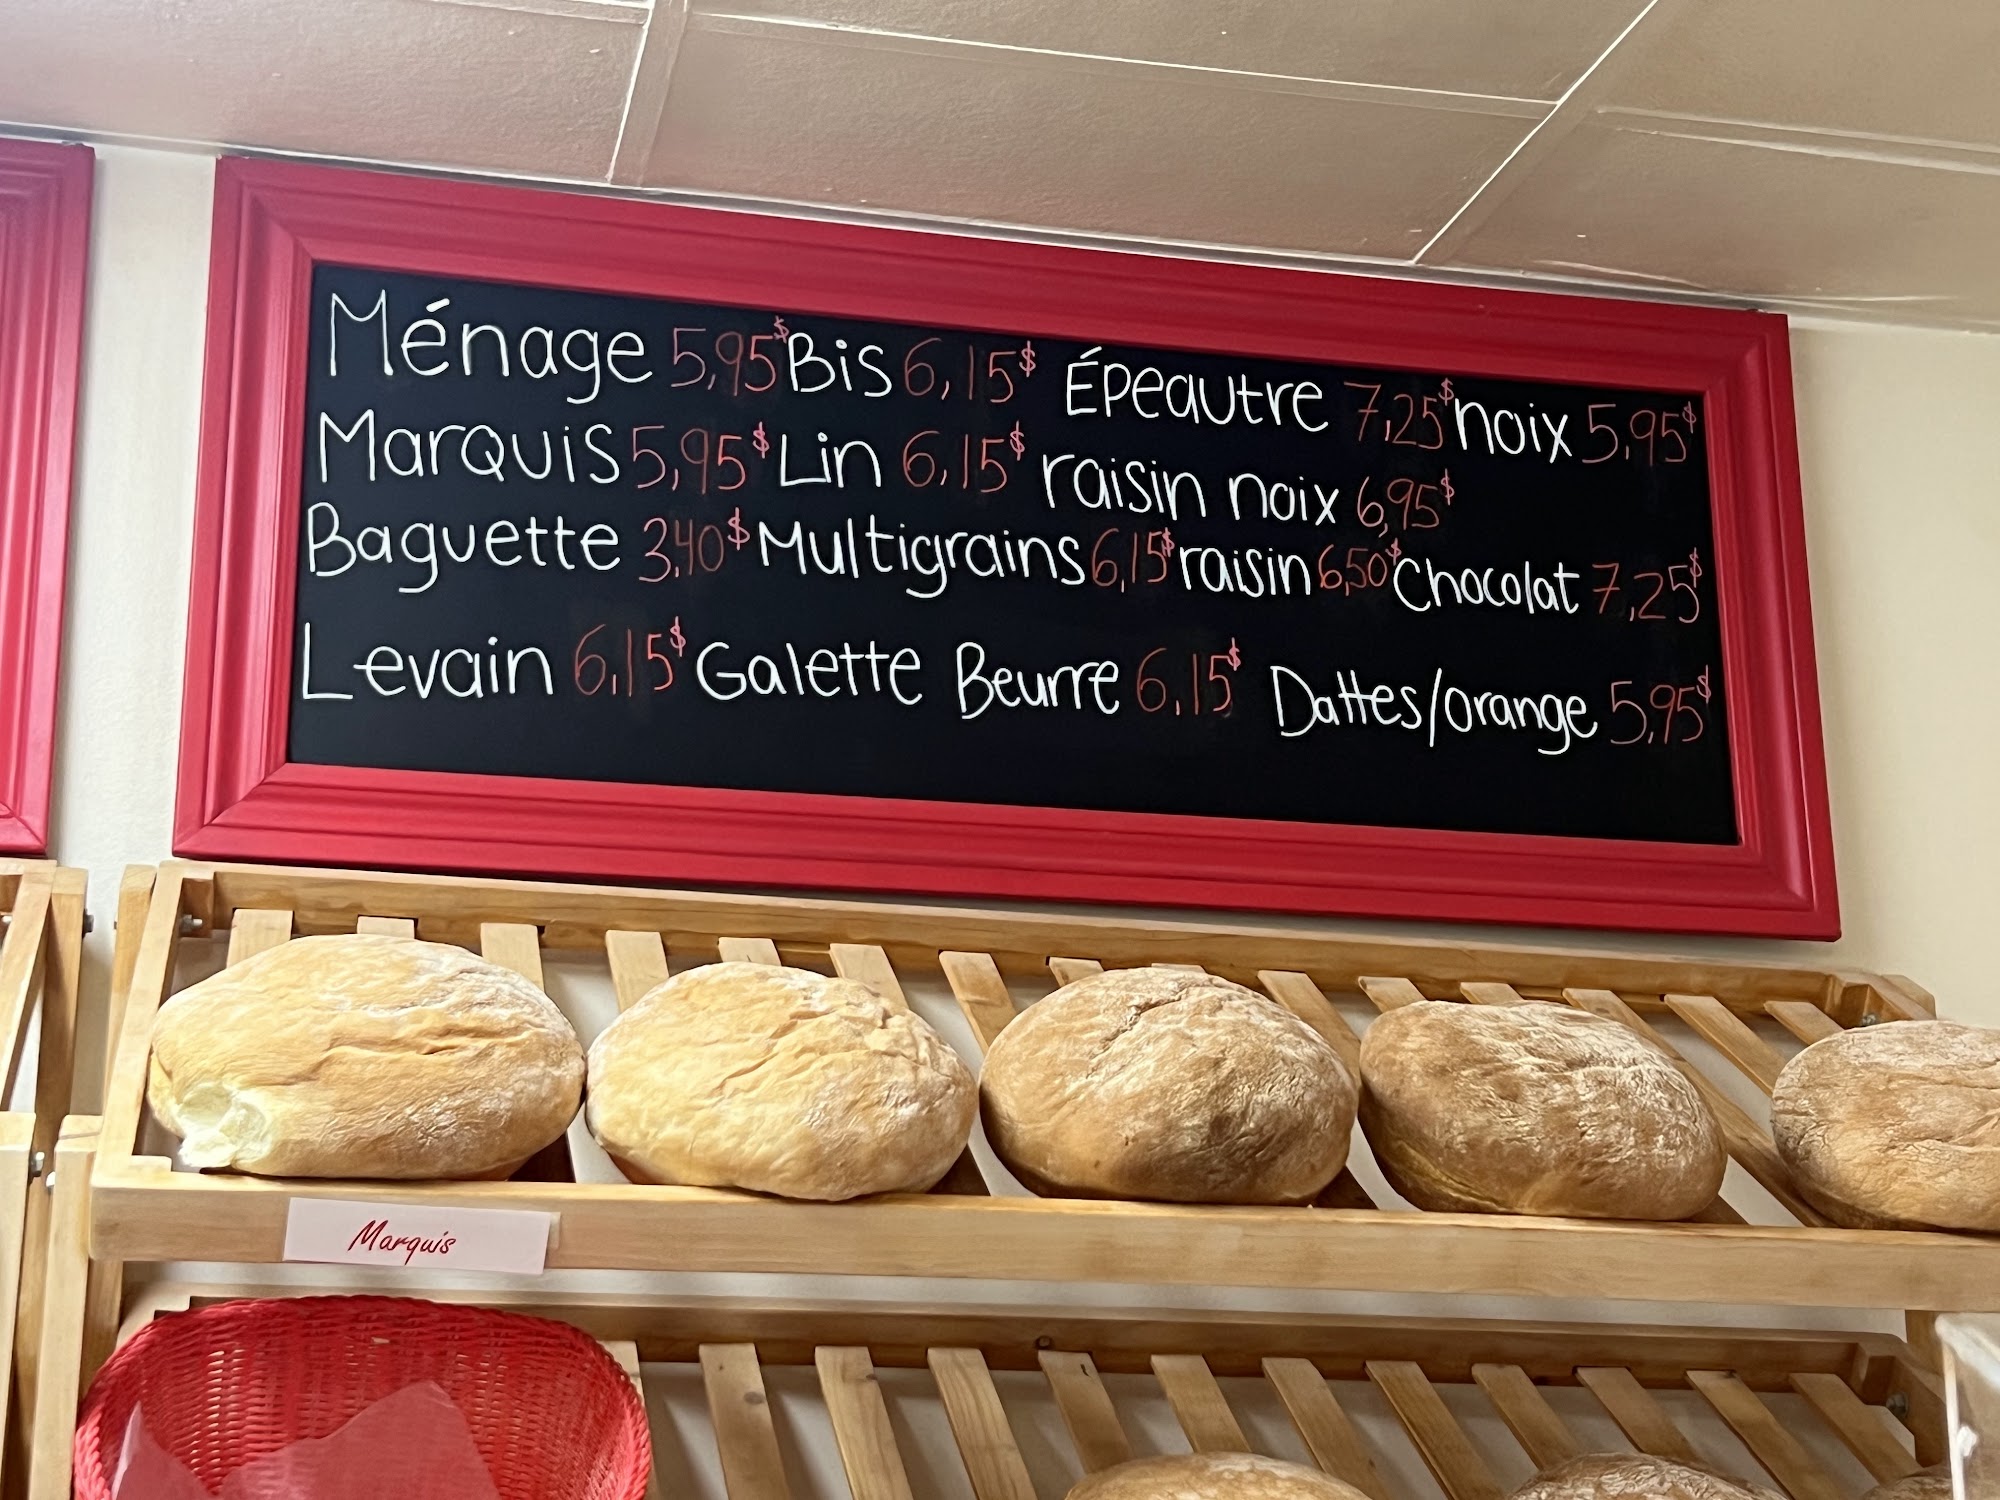 Ménage 5,95$ Bis 6,15$ Épeautre 7,25$ noix 5,95$
Marquis 5,95$ Lin 6,15$ raisin noix 6,95$
Baguette 3,40$ Multigrains 6,15$ raisin 6,50$ Chocolat 7,25$
Levain 6,15$ Galette Beurre 6,15$ Dattes/orange 5,95$
Marquis